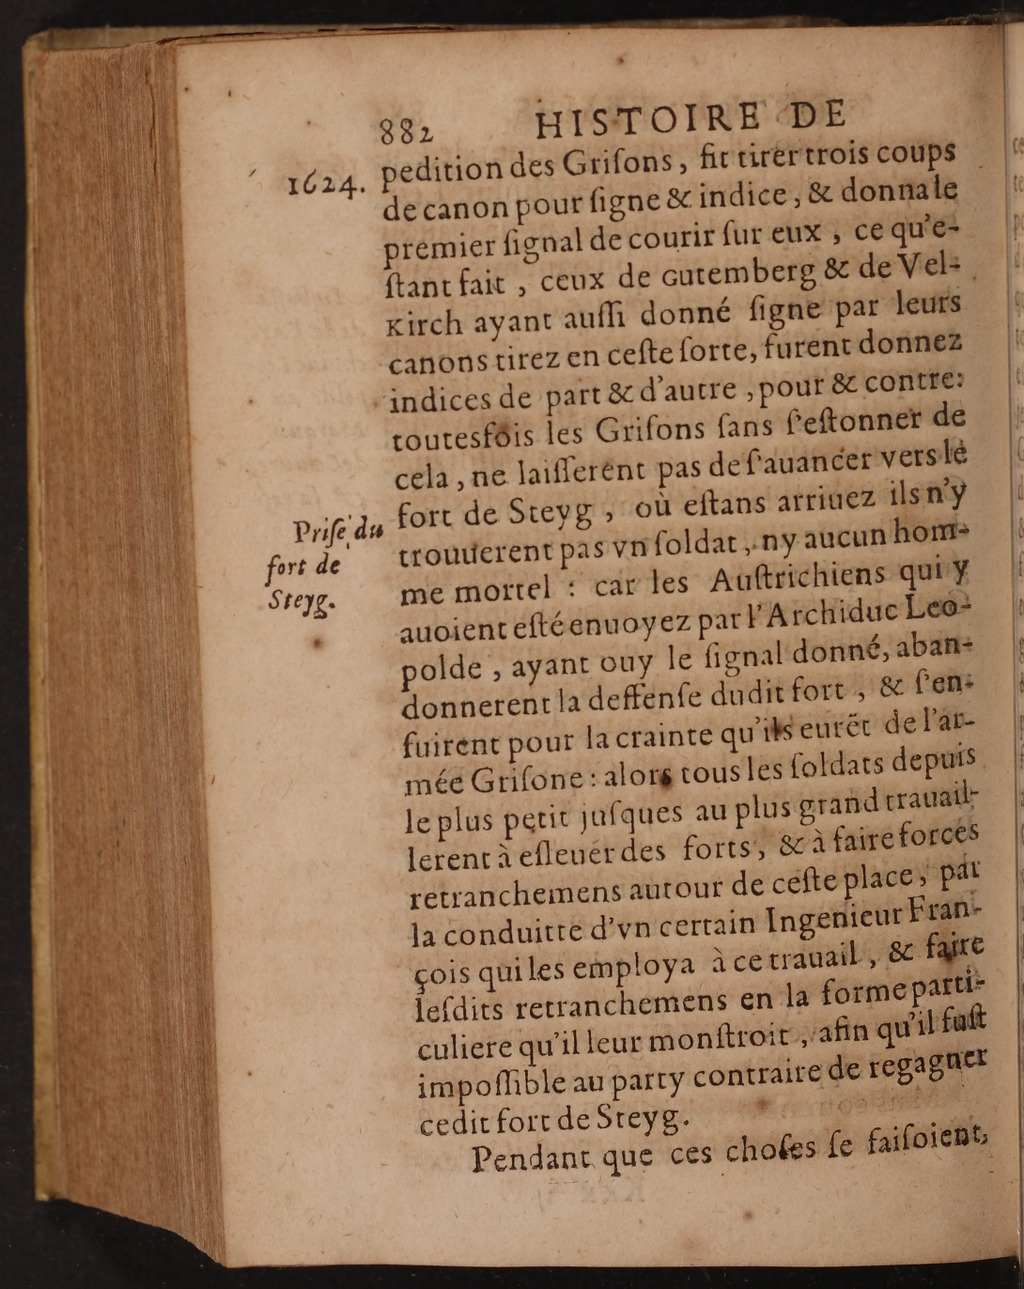 882 HISTOIRE DE
1624. pedition des Griſons, fit tirer trois coups
de canon pour ſigne & indice, & donna le
premier ſignal de courir ſur eux, ce qu'e-
ſtant fait, ceux de Gutemberg & de Vel-
Kirch ayant auſſi donné ſigne par leurs
canons tirez en ceſte ſorte, furent donnez
indices de part & d'autre, pour & contre:
toutesfois les Griſons ſans ſ'eſtonner de
cela, ne laiſſerent pas de ſ'auancer vers le
fort de Steyg, où eſtans arriuez ils n'y
Priſe du
fort de
Steyg.
trouuerent pas vn ſoldat, ny aucun hom-
me mortel : car les Auſtrichiens qui y
auoient eſté enuoyez par l'Archiduc Leo-
polde, ayant ouy le ſignal donné, aban-
donnerent la deffenſe dudit fort, & ſ'en-
fuirent pour la crainte qu'ils eurēt de l'ar-
mée Griſone : alors tous les ſoldats depuis
le plus petit juſques au plus grand trauail-
lerent à eſleuer des forts, & à faire forces
retranchemens autour de ceſte place, par
la conduitte d'vn certain Ingenieur Fran-
çois qui les employa à ce trauail, & faire
leſdits retranchemens en la forme parti-
culiere qu'il leur monſtroit, afin qu'il fuſt
impoſſible au party contraire de regagner
cedit fort de Steyg.
Pendant que ces choſes ſe faiſoient,